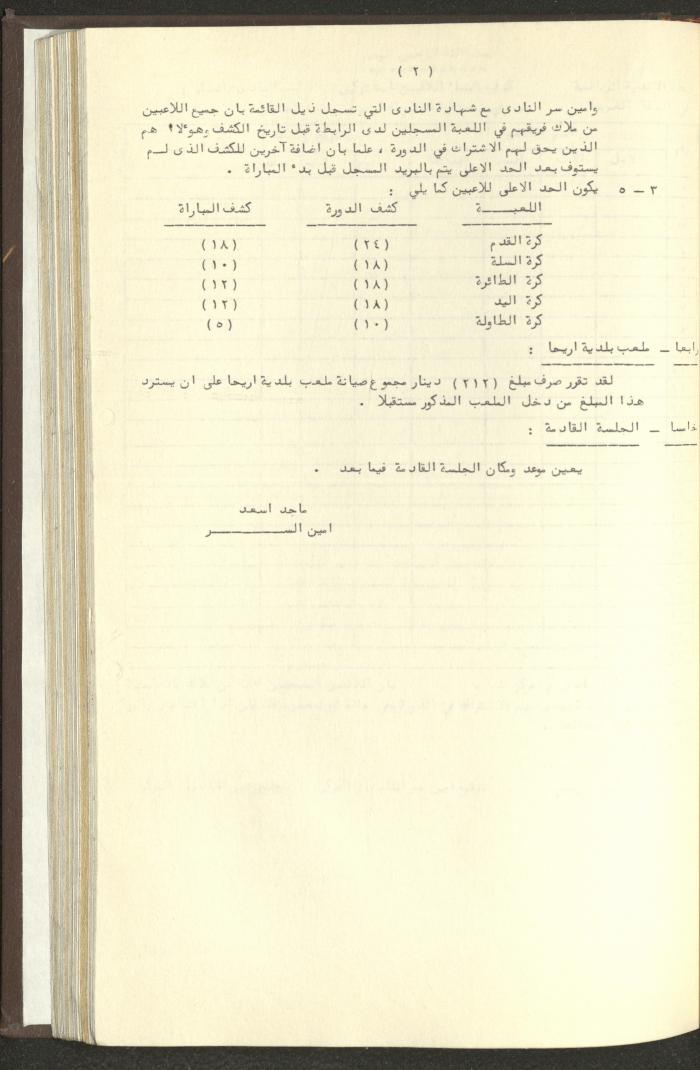 ( ٢ )
وامين سر النادى مع شهادة النادى التي تسجل ذيل القائمة بان جميع اللاعبين
من ملاك فريقهم في اللعبة السجلين لدى الرابطة قبل تاريخ الكشف وهوءلاء هم
الذين يحق لهم الاشتراك في الدورة ، علما بان اضافة آخرين للكشف الذى لــم
يستوف بعد الحد الاعلى يتم بالبريد المسجل قبل بدء المباراة .
٣ – ٥ يكون الحد الاعلى للاعبين كما يلي :
اللعبـــــة كشف الدورة كشف المباراة
كرة القدم (٢٤) (١٨)
كرة السلة (١٨) (١٠)
كرة الطائرة (١٨) (١٢)
كرة اليد (١٨) (١٢)
كرة الطاولة (١٠) (٥)
رابعا – ملعب بلدية اريحا :
لقد تقرر صرف مبلغ (٢١٢) دينار مجموع صيانة ملعب بلدية اريحا على ان يسترد
هذا المبلغ من دخل الملعب المذكور مستقبلا .
خاسا – الجلسة القادمة :
يعين موعد ومكان الجلسة القادمة فيما بعد .
ماجد اسعد
امين الســــــــر